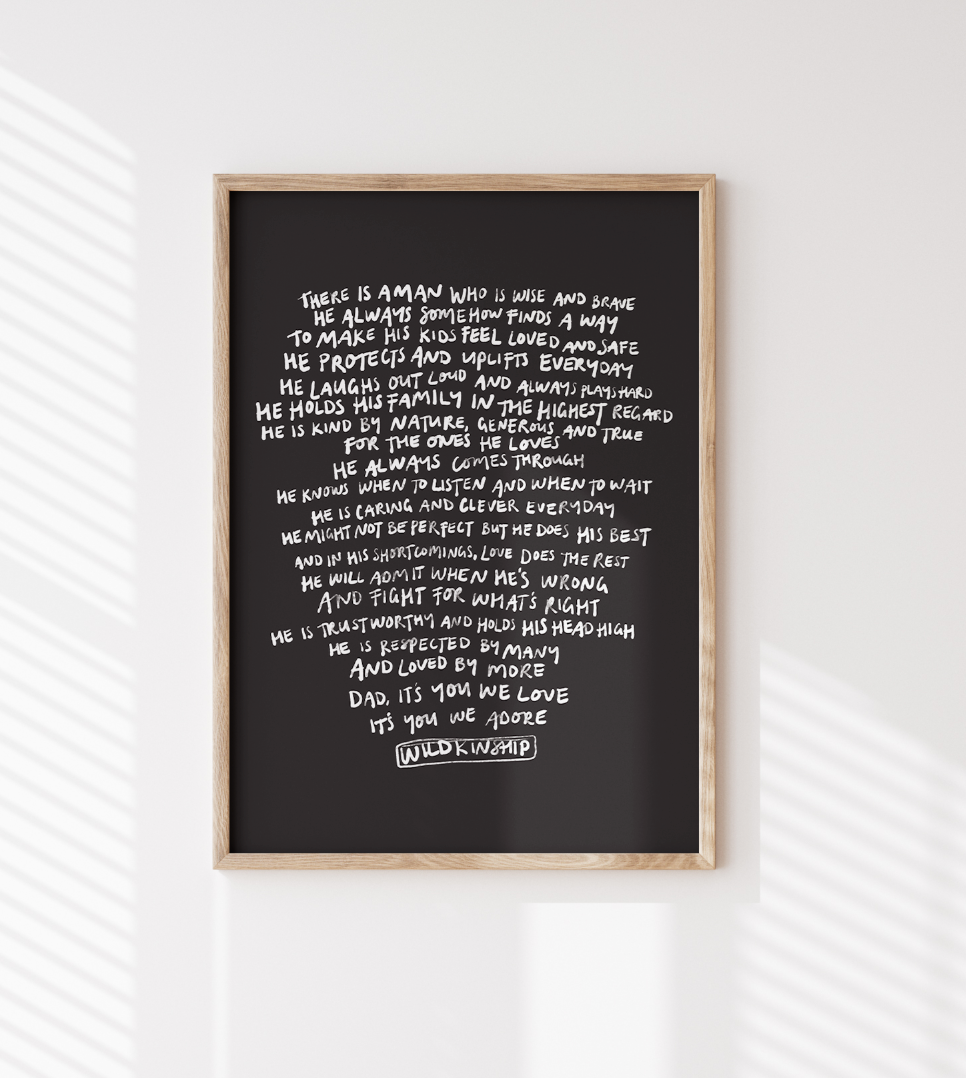 THERE IS A MAN WHO IS WISE AND BRAVE
HE ALWAYS SOMEHOW FINDS A WAY
TO MAKE HIS KIDS FEEL LOVED AND SAFE
HE PROTECTS AND UPLIFTS EVERYDAY
HE LAUGHS OUT LOUD AND ALWAYS PLAYS HARD
HE HOLDS HIS FAMILY IN THE HIGHEST REGARD
HE IS KIND BY NATURE, GENEROUS AND TRUE
FOR THE ONES HE LOVES
HE ALWAYS COMES THROUGH
HE KNOWS WHEN TO LISTEN AND WHEN TO WAIT
HE IS CARING AND CLEVER EVERYDAY
HE MIGHT NOT BE PERFECT BUT HE DOES HIS BEST
AND IN HIS SHORTCOMINGS, LOVE DOES THE REST
HE WILL ADMIT WHEN HE'S WRONG
AND FIGHT FOR WHAT'S RIGHT
HE IS TRUSTWORTHY AND HOLDS HIS HEAD HIGH
HE IS RESPECTED BY MANY
AND LOVED BY MORE
DAD, IT'S YOU WE LOVE
IT'S YOU WE ADORE
WILD KINSHIP